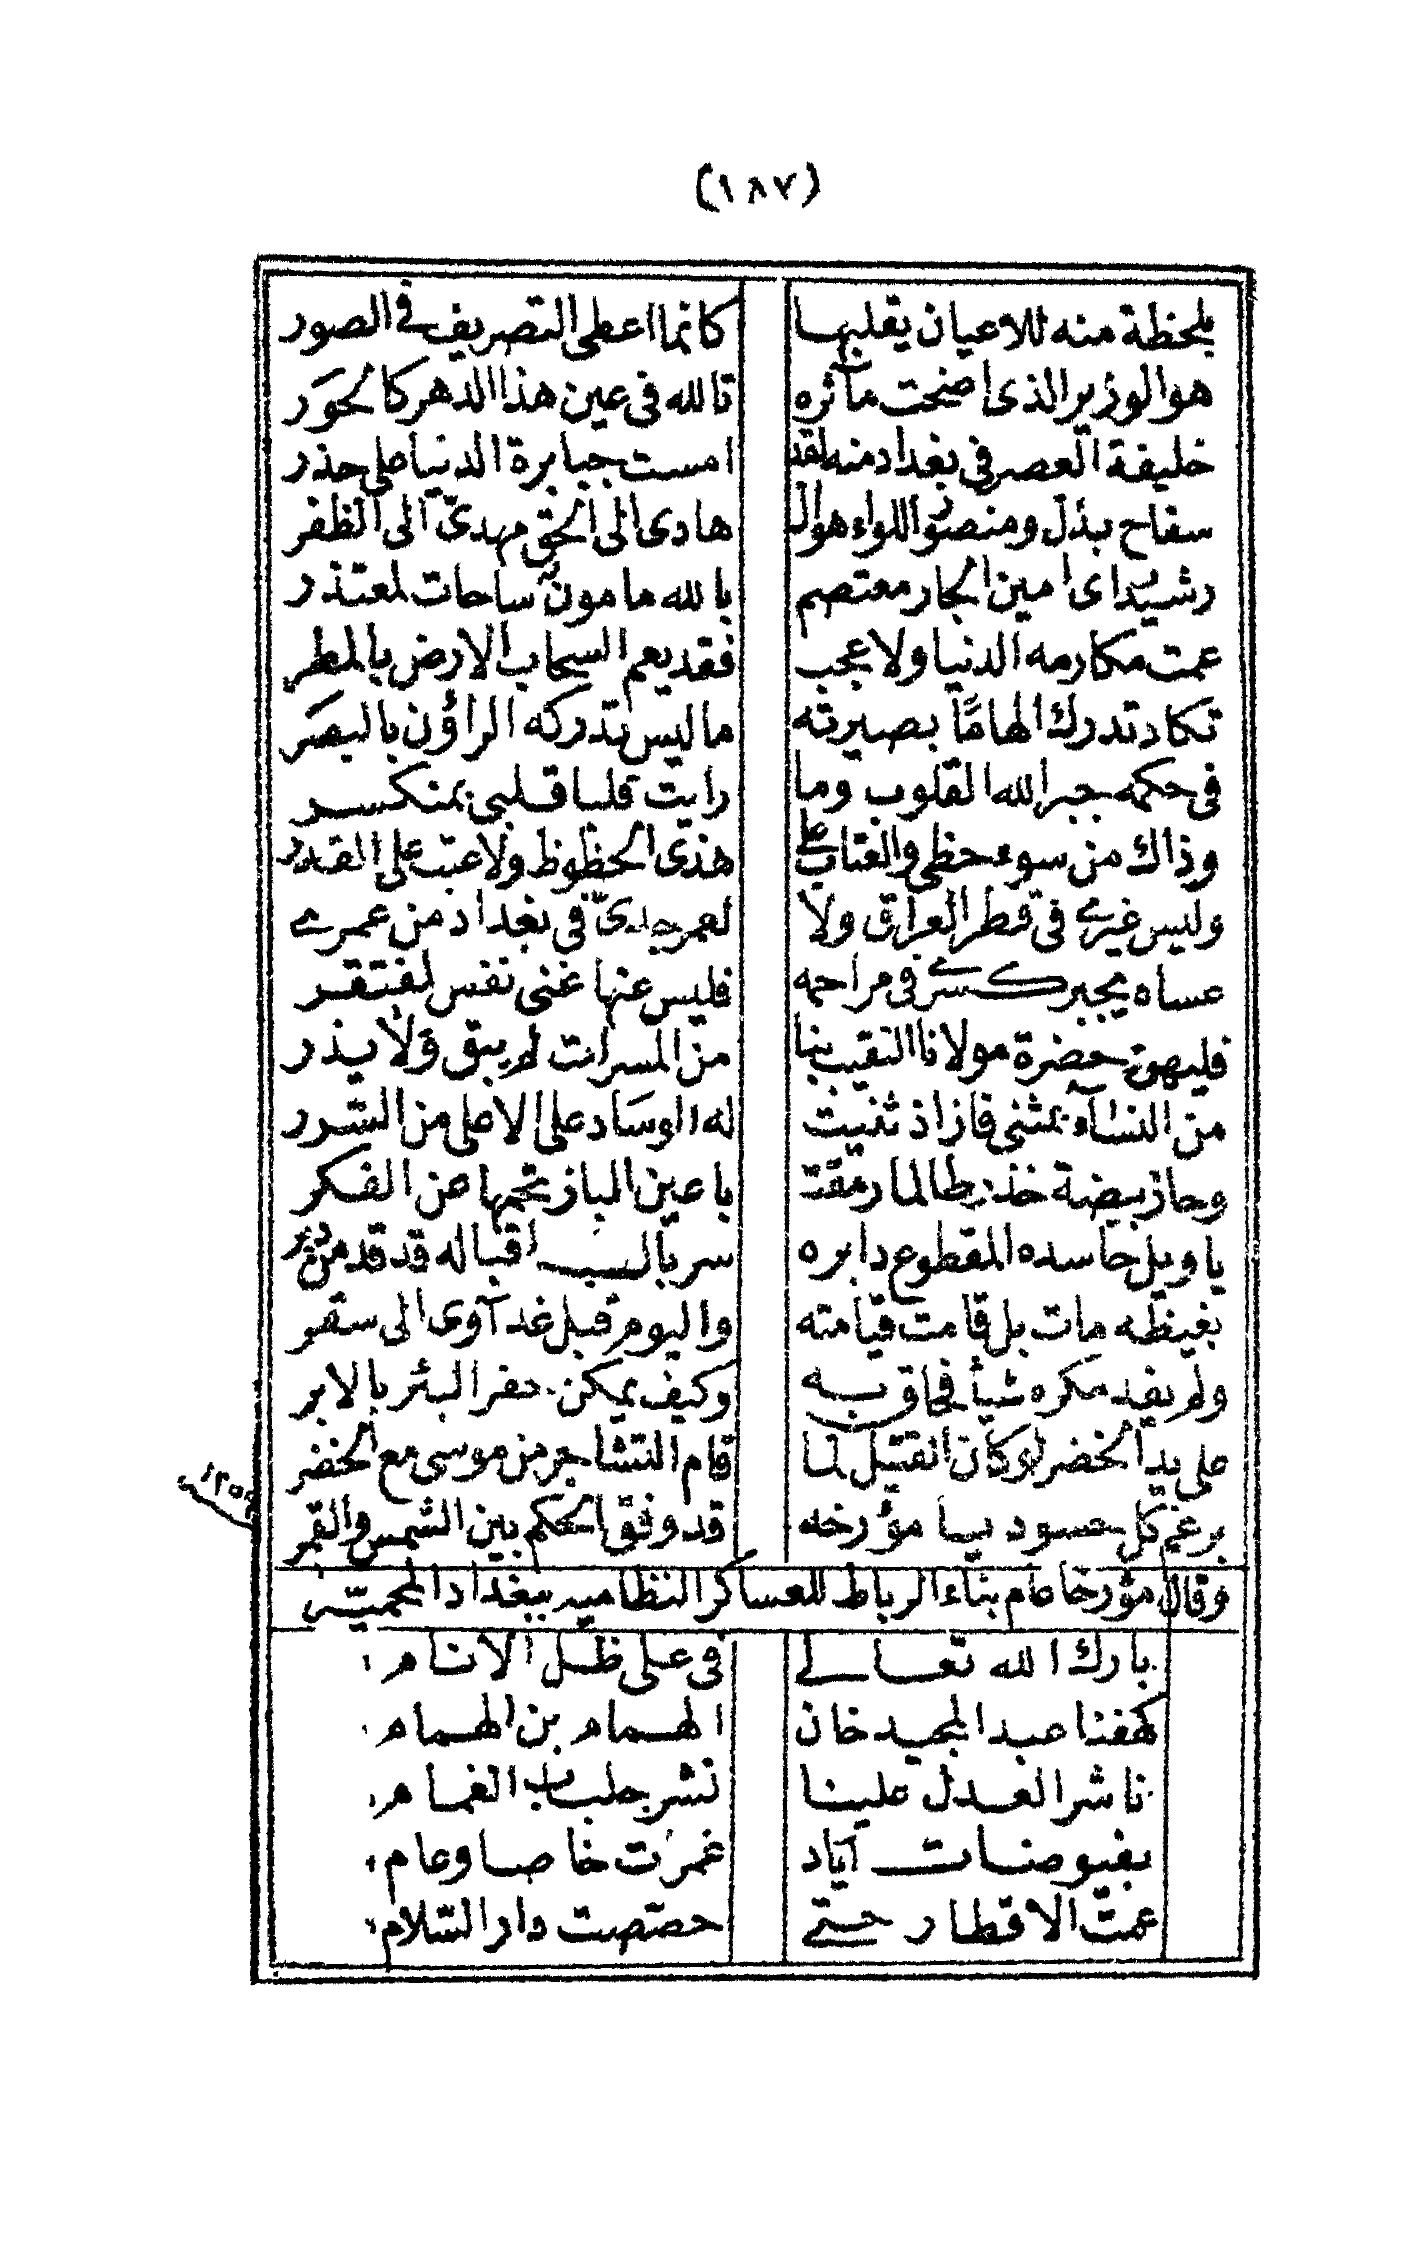 (١٨٧)
بلحظة منه للاعيان يقلبها كانما اعطى التصريف في الصور
هو الوزير الذى اضحت مآثره تالله فى عين هذا الدهر كالحوَر
خليفة العصر فى بغداد منه لقد امست جبابرة الدنيا على حذر
سفاح بذل ومنصور اللواء هو ال هادى الى الحق مهدىّ الى الظفر
رشيد اى امين الجار معتصم بالله مامون ساحات لمعتذر
عمت مكارمه الدنيا ولا عجب فقد يعم السحاب الارض بالمطر
تكاد تدرك الهامًا بصيرته ما ليس تدركه الراؤن بالبصَر
فى حكمه جبر الله القلوب وما رايت قلبا قلبى بمنكسر
وذاك من سوء حظى والعتاب على هذى الحظوظ ولا عتب على القدر
وليس غيرى فى قطر العراق ولا لعمر جدىّ فى بغداد من عمرى
عساه يجبر كسرى فى مراحمه فليس عنها غنى نفس لمفتقر
فليهن حضرة مولانا النقيب بنا من المسرات لم يبق ولا يذر
من النشاء بمثنى فاز اذ ثنيت له الوسَاد على الاعلى من السُّرر
وحاز بيضة خذر طالما رمقت باعين الباز تحمها عن الفكر
يا ويل حاسده المقطوع دابره سربال اقباله قد قد من دبر
بغيظه مات بل قامت قيامته واليوم قبل غد آوى الى سقر
ولم يفد مكره شيأ فحاق به وكيف يمكن حفر البئر بالابر
على يد الخضر لو كان القتيل لما قام التشاجر من موسى مع الخضر
برغم كل حسود يا مؤرخه قد وفق الحكم بين الشمس والقمر
١٢٥٩
وقال مؤرخا عام بناء الرباط للعساكر النظاميه ببغداد المحميّة
بارك الله تعالى فى على ظل الانام
كهفنا عبد المجيد خان الهمام بن الهمام
ناشر العدل علينا نشر جلباب الغمام
بفيوضات آياد غمرت خاصا وعام
عمت الاقطار حتى خصصت دار السّلام